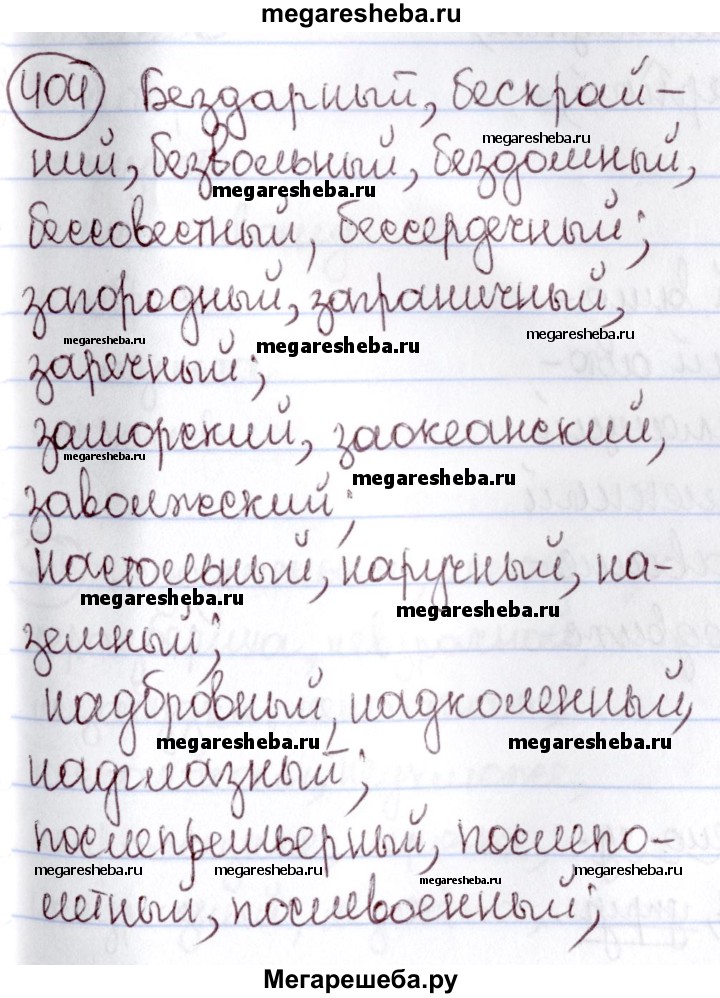 megaresheba.ru
404 Бездарный, бескрай-
megaresheba.ru
ний, безвольный, бездомный,
megaresheba.ru
бессовестный, бессердечный;
загородный, заграничный,
megaresheba.ru megaresheba.ru megaresheba.ru
заречный;
заморский, заокеанский,
megaresheba.ru megaresheba.ru
заволжский;
настольный, наручный, на-
megaresheba.ru megaresheba.ru
земный;
надбровный, надколенный,
megaresheba.ru megaresheba.ru
надглазный;
послепремьерный, послепо-
megaresheba.ru megaresheba.ru megaresheba.ru megaresheba.ru
летный, послевоенный;
Мегарешеба.ру